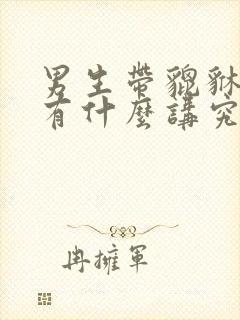 男生帶貔貅
有什麼講究
冉擁軍